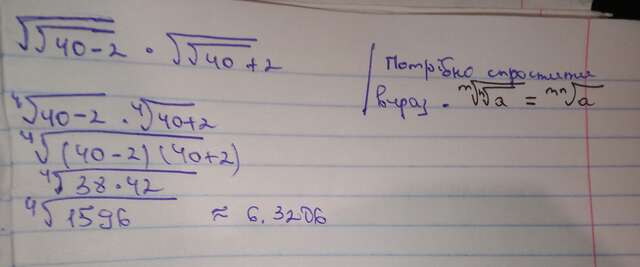 √√40-2 · √√40+2
⁴√40-2 · ⁴√40+2
⁴√(40-2)(40+2)
⁴√38·42
⁴√1596 ≈ 6.3206
Потрібно спростити
вираз. ᵐ√ⁿ√a = ᵐⁿ√a